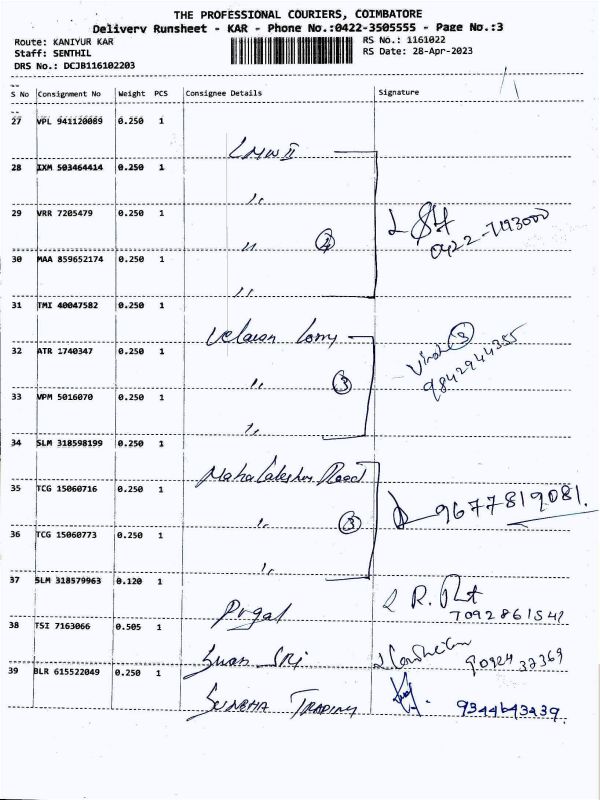 THE PROFESSIONAL COURIERS, COIMBATORE
Delivery Runsheet - KAR - Phone No.:0422-3505555 - Page No.:3
Route: KANIYUR KAR
RS No.: 1161022
Staff: SENTHIL
RS Date: 28-Apr-2023
DRS No.: DCJB116102203
S No Consignment No Weight PCS Consignee Details Signature
27 VPL 941120089 0.250 1
LMW II
28 IXM 503464414 0.250 1
〃
29 VRR 7205479 0.250 1
〃 4
0422-7193000
30 MAA 859652174 0.250 1
〃
31 TMI 40047582 0.250 1
Velavan Lorry
32 ATR 1740347 0.250 1
〃 3
3
9842944355
33 VPM 5016070 0.250 1
〃
34 SLM 318598199 0.250 1
Road
35 TCG 15060716 0.250 1
〃 3
9677819081.
36 TCG 15060773 0.250 1
〃
37 SLM 318579963 0.120 1
R.
7092861542
38 TSI 7163066 0.505 1
Sri
90924 37369
39 BLR 615522049 0.250 1
Trading
9344643439.